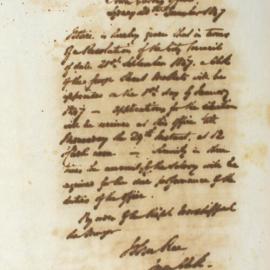 Notice is hereby given that in terms
of a Resolution of the City Council
of date 21st September 1847, a Clerk
of the George Street Markets will be
appointed on the 1st day of January
— Applications for the situation
will be received at this Office till
Wednesday the 29th Instant, at 12
o'clock noon — Security in
the amount of the Salary will be
required for the due performance of the
duties of the Office.
By order of the Right Worshipful
the Mayor
John Rae
Town Clerk